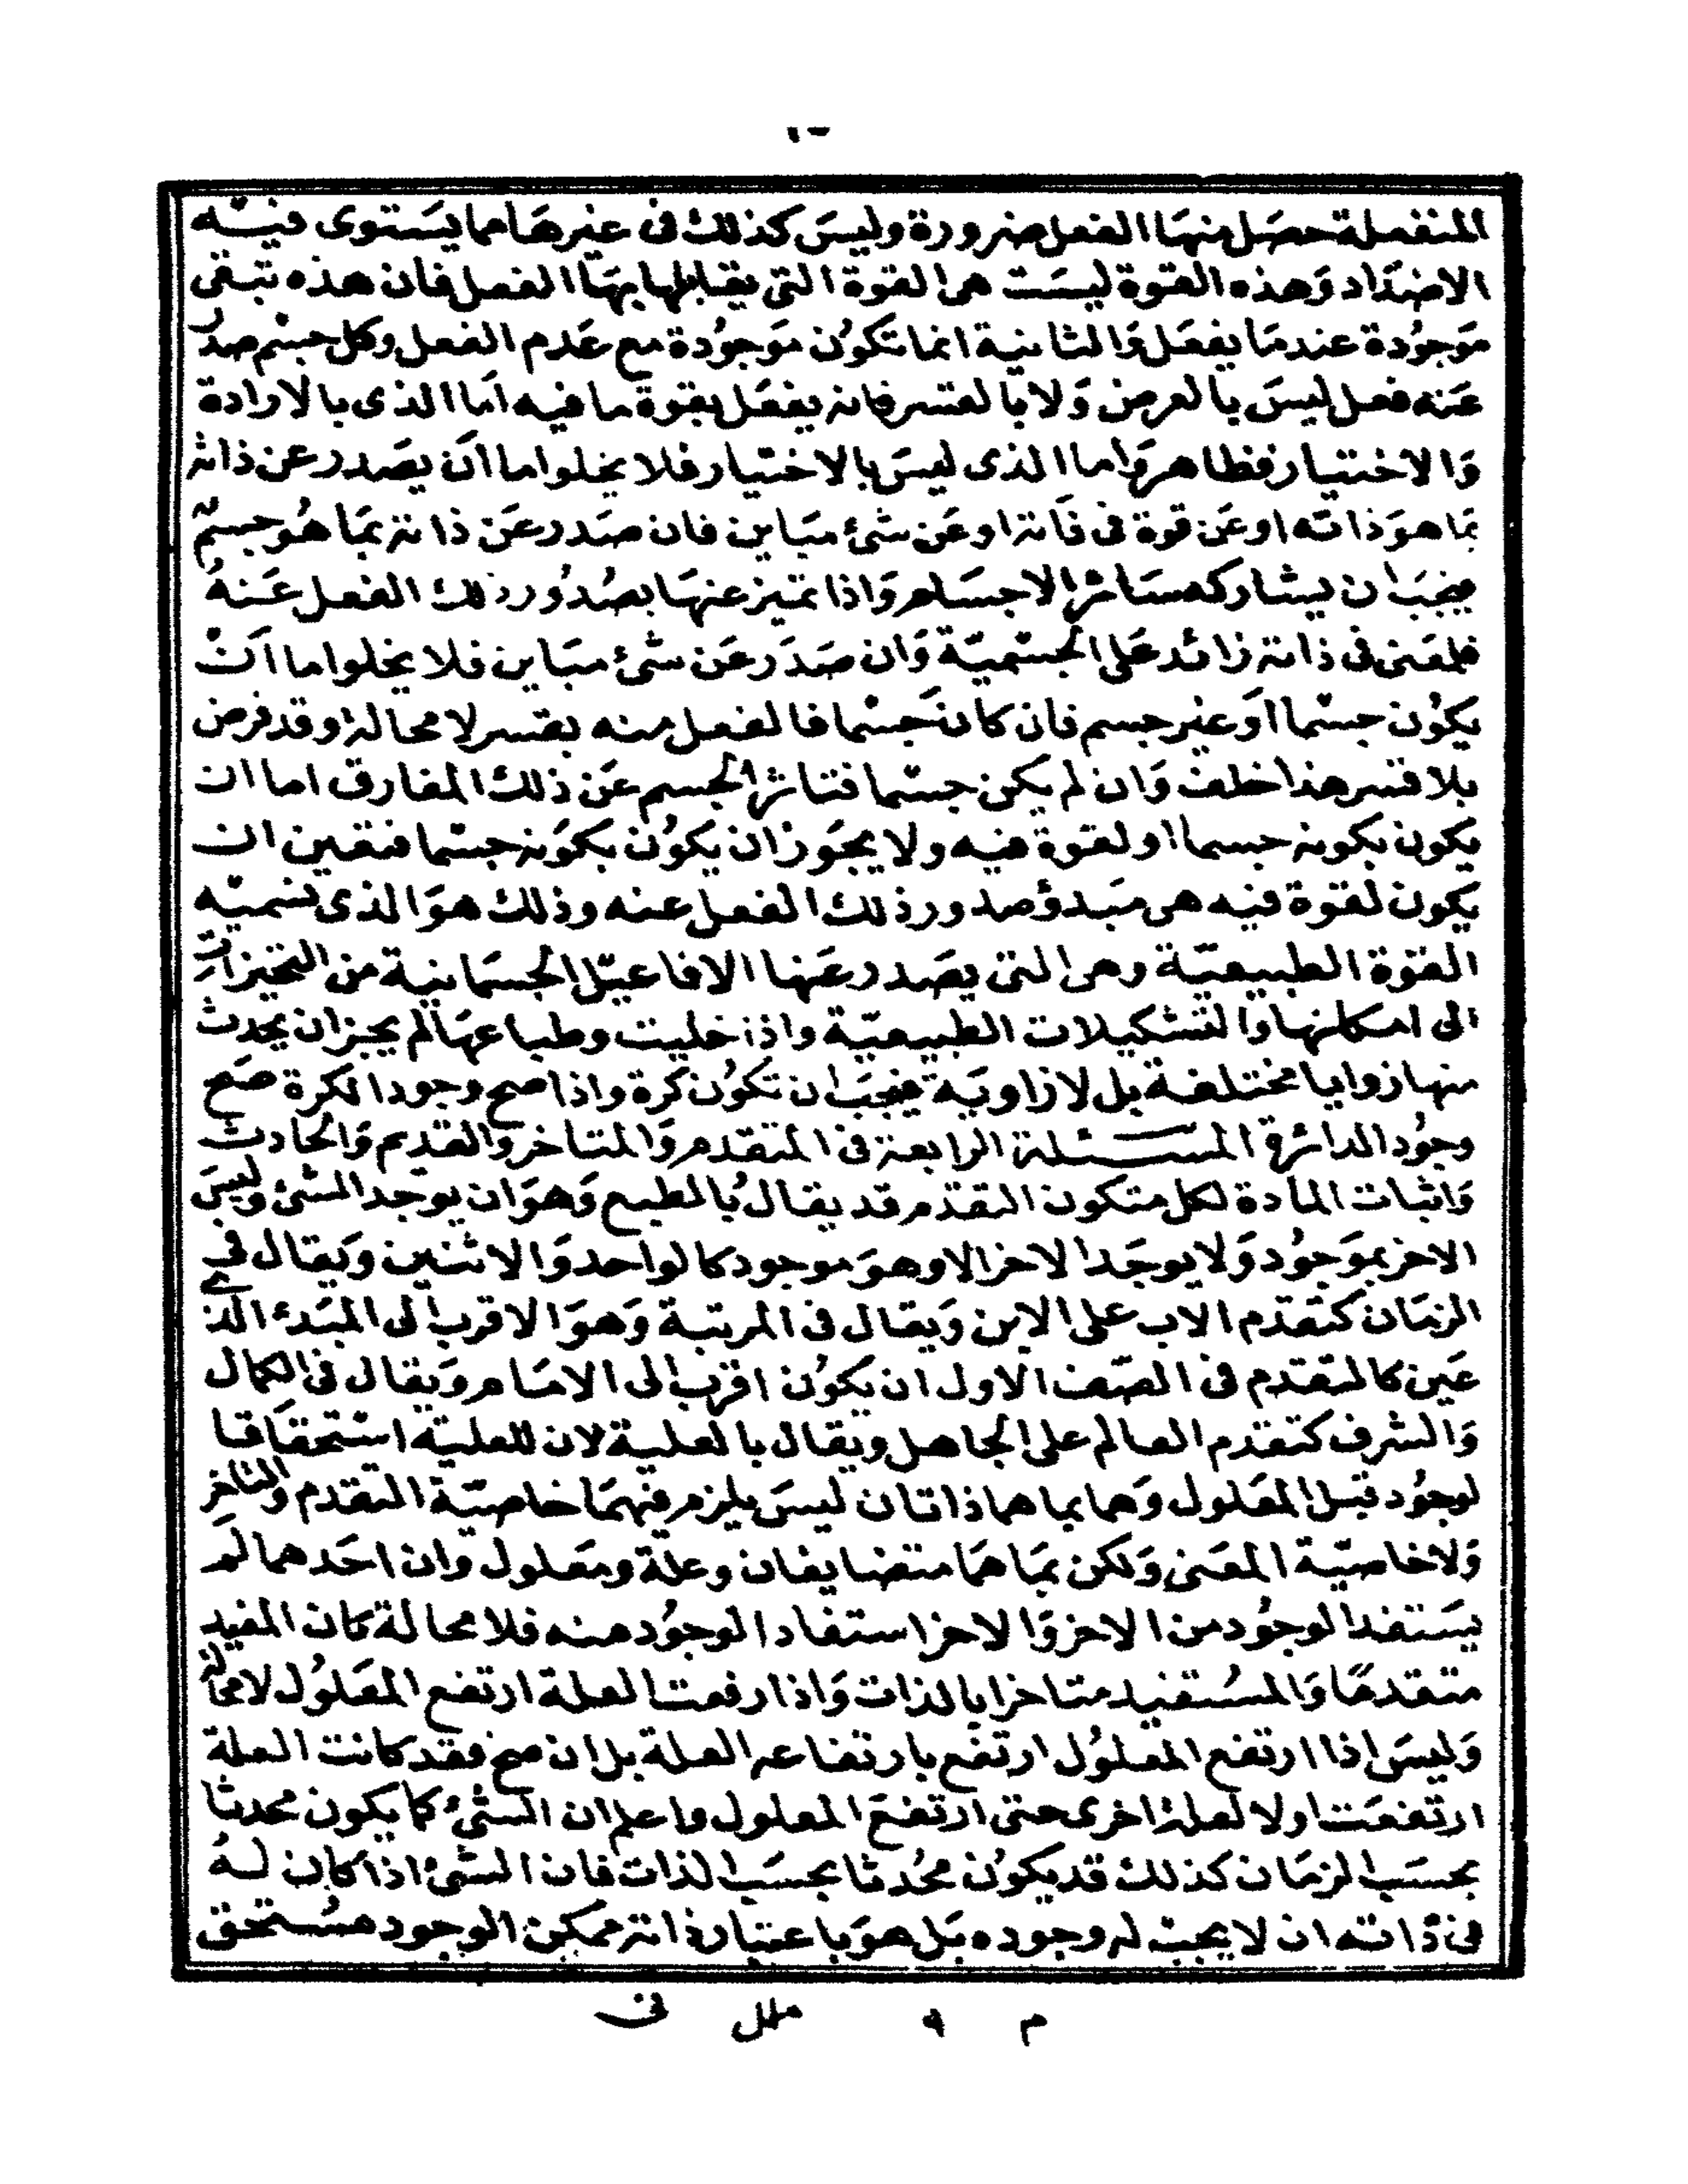 المنفعلة حصل منها الفعل ضرورة وليس كذلك فى غيرها مما يستوى فيه
الاضداد وهذه القوة ليست هى القوة التى يقابلها بها الفعل فان هذه تبقى
موجودة عند ما يفعل والثانية انما تكون موجودة مع عدم الفعل وكل جسم صدر
عنه فعل ليس بالعرض ولا بالقسر فانه يفعل بقوة ما فيه اما الذى بالارادة
والاختيار فظاهر واما الذى ليس بالاختيار فلا يخلوا اما ان يصدر عن ذاته
بما هو ذاته او عن قوة فى ذاته او عن شئ مباين فان صدر عن ذاته بما هو جسم
فيجب ان يشاركه سائر الاجسام واذا تميز عنها بصدور ذلك الفعل عنه
فلمعنى فى ذاته زائد على الجسمية وان صدر عن شئ مباين فلا يخلوا اما ان
يكون جسما او غير جسم فان كان جسما فالفعل منه بقسر لا محالة وقد فرض
بلا قسر هذا خلف وان لم يكن جسما فتاثر الجسم عن ذلك المفارق اما ان
يكون بكونه جسما او لقوة فيه ولا يجوز ان يكون بكونه جسما فتعين ان
يكون لقوة فيه هى مبدؤ صدور ذلك الفعل عنه وذلك هو الذى نسميه
القوة الطبيعية وهى التى يصدر عنها الافاعيل الجسمانية من التحيزات
الى امكانها والتشكيلات الطبيعية واذا خليت وطباعها لم يجز ان يحدث
منها زوايا مختلفة بل لا زاوية فيجب ان تكون كرة واذا صح وجود الكرة صح
وجود الدائرة المسئلة الرابعة فى المتقدم والمتاخر والقديم والحادث
واثبات المادة لكل متكون التقدم قد يقال بالطبع وهو ان يوجد الشئ وليس
الاخر بموجود ولا يوجد الاخر الا وهو موجود كالواحد والاثنين ويقال فى
الزمان كتقدم الاب على الابن ويقال فى المرتبة وهو الاقرب الى المبدء الذى
عين كالمتقدم فى الصف الاول ان يكون اقرب الى الامام ويقال فى الكمال
والشرف كتقدم العالم على الجاهل ويقال بالعلية لان للعلية استحقاقا
لوجود قبل المعلول وهما بما هما ذاتان ليس يلزم فيهما خاصية التقدم والتاخر
ولا خاصية المعنى ولكن بما هما متضايفان وعلة ومعلول وان احدهما لم
يستفد الوجود من الاخر والاخر استفاد الوجود منه فلا محالة كان المفيد
متقدما والمستفيد متاخرا بالذات واذا رفعت العلة ارتفع المعلول لا محالة
وليس اذا ارتفع المعلول ارتفع بارتفاعه العلة بل ان صح فقد كانت العلة
ارتفعت اولا لعلة اخرى حتى ارتفع المعلول واعلم ان الشئ كما يكون محدثا
بحسب الزمان كذلك قد يكون محدثا بحسب الذات فان الشئ اذا كان له
فى ذاته ان لا يجب له وجوده بل هو باعتبار ذاته ممكن الوجود مستحق
م ٩ ملل فى